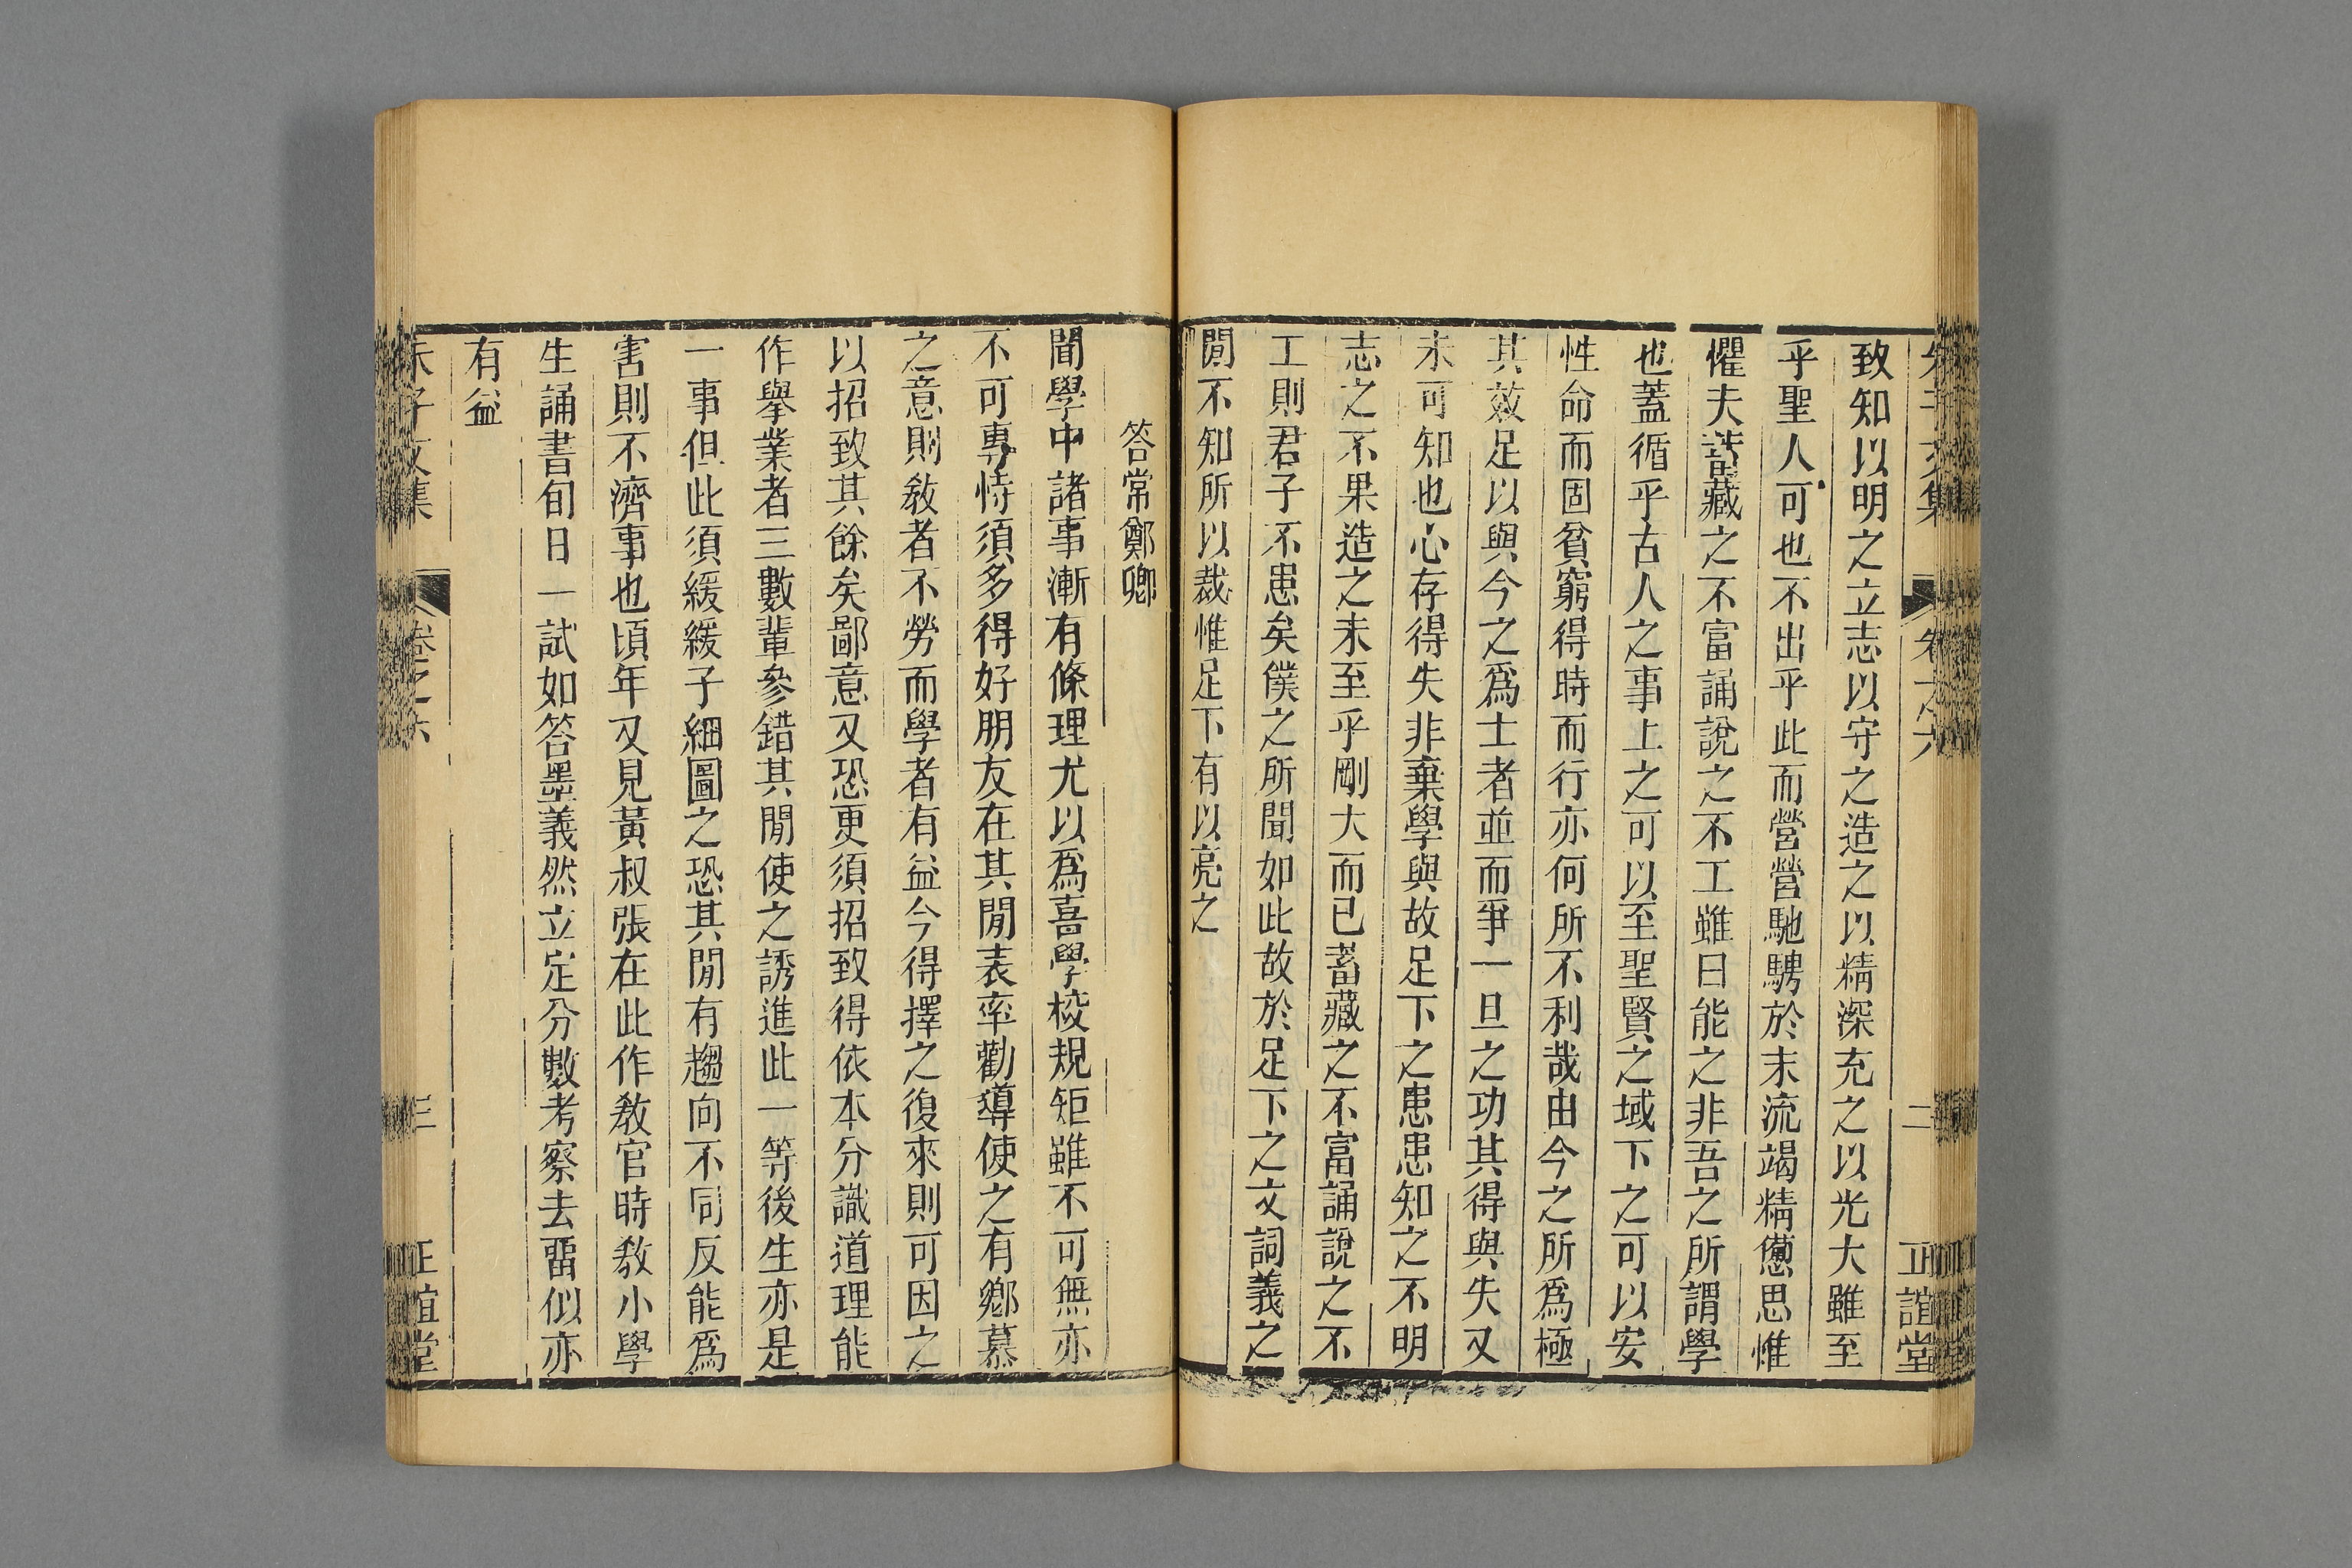 朱子文集 卷之六 二 正誼堂
致知以明之立志以守之造之以精深充之以光大雖至
乎聖人可也不出乎此而營營馳騁於末流竭精憊思惟
懼夫蓄藏之不富誦說之不工雖曰能之非吾之所謂學
也蓋循乎古人之事上之可以至聖賢之域下之可以安
性命而固貧窮得時而行亦何所不利哉由今之所爲極
其效足以與今之爲士者並而爭一旦之功其得與失又
未可知也心存得失非棄學與故足下之患患知之不明
志之不果造之未至乎剛大而已蓄藏之不富誦說之不
工則君子不患矣僕之所聞如此故於足下之文詞義之
閒不知所以裁惟足下有以亮之
答常鄭卿
聞學中諸事漸有條理尤以爲喜學校規矩雖不可無亦
不可專恃須多得好朋友在其閒表率勸導使之有鄕慕
之意則敎者不勞而學者有益今得擇之復來則可因之
以招致其餘矣鄙意又恐更須招致得依本分識道理能
作舉業者三數輩參錯其閒使之誘進此一等後生亦是
一事但此須緩緩子細圖之恐其閒有趨向不同反能爲
害則不濟事也頃年又見黃叔張在此作敎官時敎小學
生誦書旬日一試如答墨義然立定分數考察去畱似亦
有益
朱子文集 卷之六 三 正誼堂